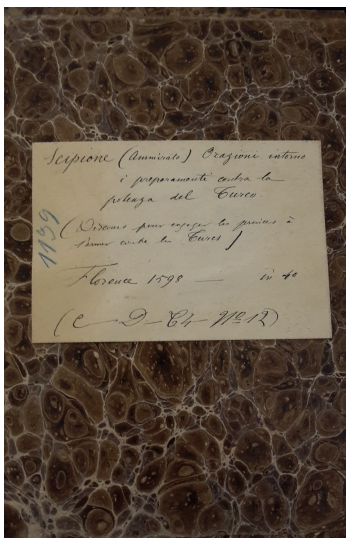 Scipione (Ammirato) Orazioni intorno
i preparamenti contra la
potenza del Turco.
(Discours pour engager les princes à
s'armer contre les Turcs)
1139
Florence 1598 — in 4o
(C — D — C4 — No 12)